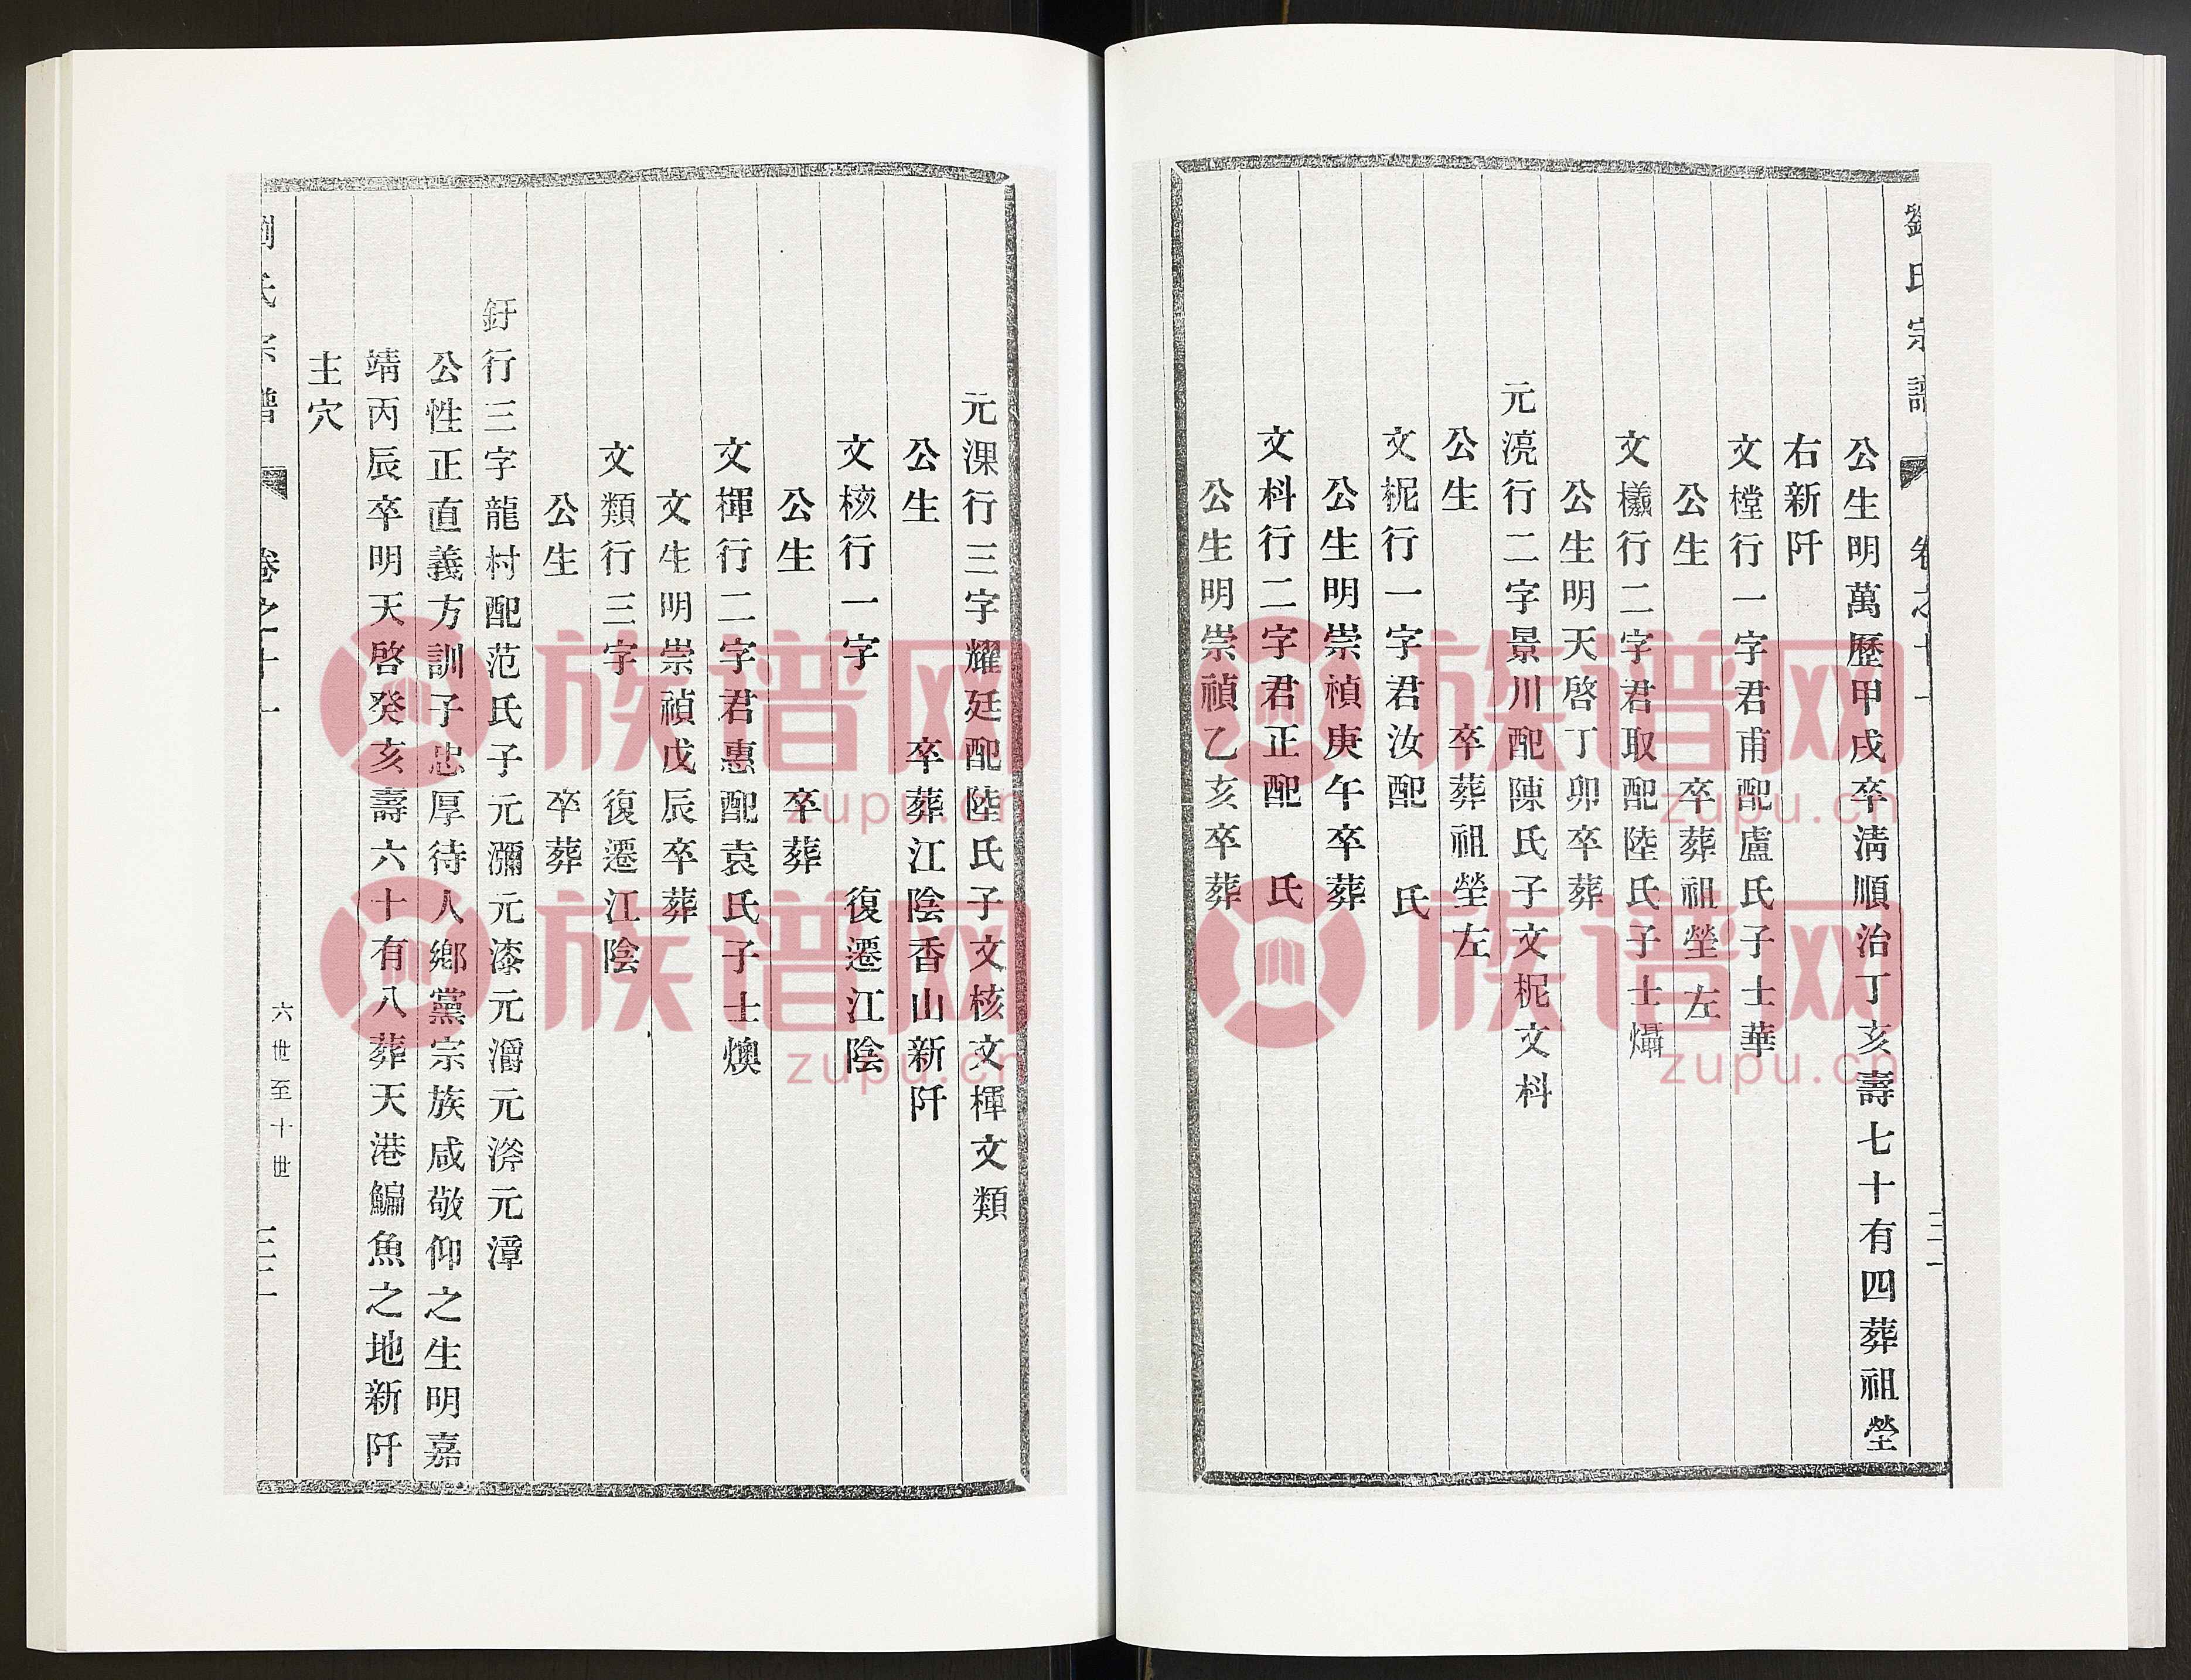 劉氏宗譜 卷之十一
公生明萬歷甲戌卒淸順治丁亥壽七十有四葬祖塋
右新阡
文樘行一字君甫配盧氏子士華
公生 卒葬祖塋左
文櫼行二字君取配陸氏子士灄
公生明天啓丁卯卒葬
元滰行二字景川配陳氏子文柅文枓
公生 卒葬祖塋左
文柅行一字君汝配 氏
公生明崇禎庚午卒葬
文枓行二字君正配 氏
公生明崇禎乙亥卒葬
元淉行三字耀廷配陸氏子文核文楎文類
公生 卒葬江陰香山新阡
文核行一字 復遷江陰
公生 卒葬
文楎行二字君惠配袁氏子士燠
文生明崇禎戊辰卒葬
文類行三字 復遷江陰
公生 卒葬
釪行三字龍村配范氏子元瀰元漆元灂元元漳
公性正直義方訓子忠厚待人鄉黨宗族咸敬仰之生明嘉
靖丙辰卒明天啓癸亥壽六十有八葬天港鯿魚之地新阡
主穴
劉氏宗譜 卷之十一 六世至十世
族谱网
zupu.cn
族谱网
zupu.cn
族谱网
zupu.cn
族谱网
zupu.cn